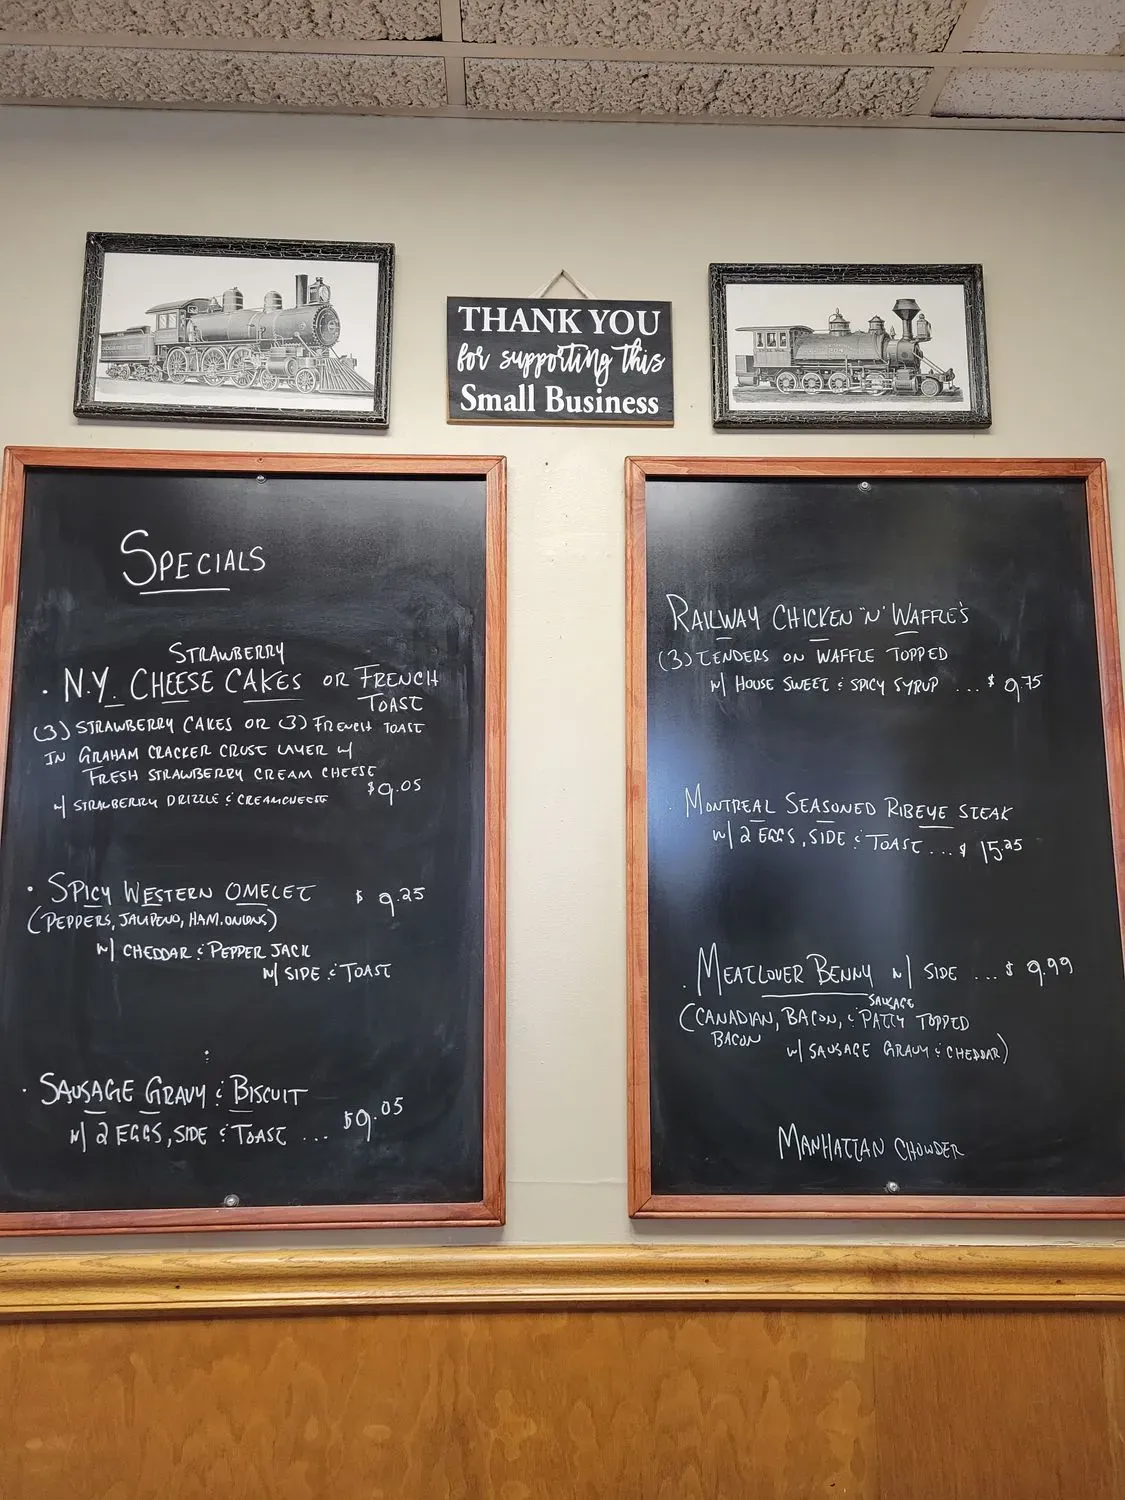 THANK YOU
for supporting this
Small Business
SPECIALS
STRAWBERRY
· N.Y. CHEESE CAKES OR FRENCH
TOAST
(3) STRAWBERRY CAKES OR (3) FRENCH TOAST
IN GRAHAM CRACKER CRUST LAYER w/
FRESH STRAWBERRY CREAM CHEESE
w/ STRAWBERRY DRIZZLE & CREAMCHEESE $9.05
· SPICY WESTERN OMELET $ 9.25
(PEPPERS, JALAPENO, HAM, ONIONS)
w/ CHEDDAR & PEPPER JACK
w/ SIDE & TOAST
· SAUSAGE GRAVY & BISCUIT
w/ 2 EGGS, SIDE & TOAST ... $9.05
RAILWAY CHICKEN "N" WAFFLE'S
(3) TENDERS ON WAFFLE TOPPED
w/ HOUSE SWEET & SPICY SYRUP ... $ 9.75
· MONTREAL SEASONED RIBEYE STEAK
w/ 2 EGGS, SIDE & TOAST ... $ 15.25
· MEATLOVER BENNY w/ SIDE ... $ 9.99
SAUSAGE
(CANADIAN, BACON, & PATTY TOPPED
BACON
w/ SAUSAGE GRAVY & CHEDDAR)
MANHATTAN CHOWDER